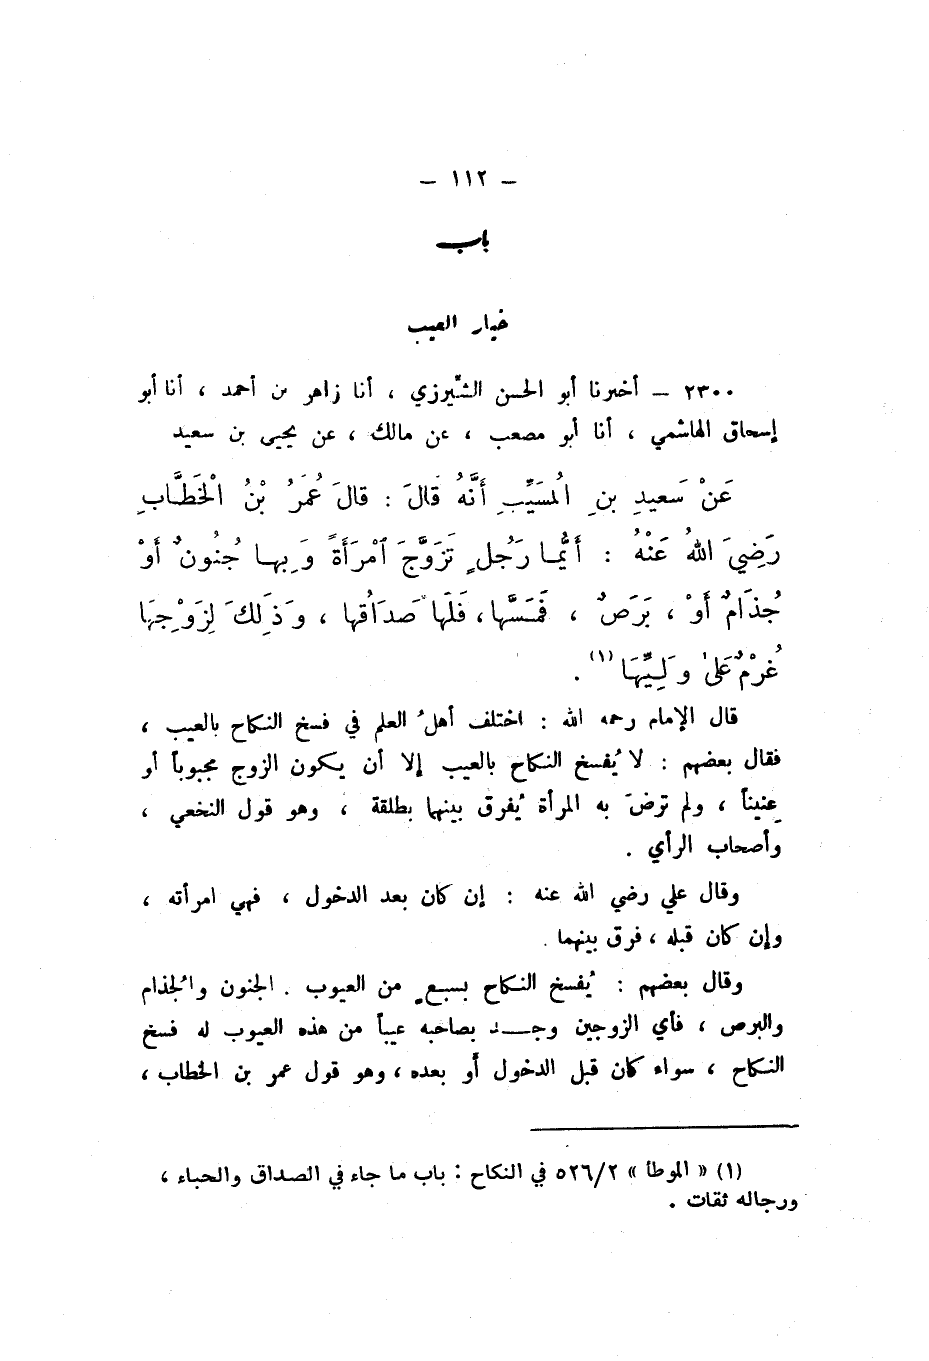 – ١١٢ –
باب
خيار العيب
٢٣٠٠ – أخبرنا أبو الحسن الشّيرزي ، أنا زاهر بن أحمد ، أنا أبو
إسحاق الهاشمي ، أنا أبو مصعب ، عن مالك ، عن يحيى بن سعيد
عَنْ سَعيدِ بنِ المُسَيِّبِ أَنَّهُ قَالَ : قالَ عُمَرُ بْنُ الْخَطَّابِ
رَضِيَ اللهُ عَنْهُ : أَيُّما رَجُلٍ تَزَوَّجَ آمْرَأَةً وَبِها جُنُونٌ أَوْ
جُذَامٌ أَوْ ، بَرَصٌ ، فَمَسَّها، فَلَها صَدَاُقها ، وَذَلِكَ لِزَوْجِهَا
غُرْمٌ عَلىٰ وَلِيِّهَا (١) .
قال الإمام رحمه الله : اختلف أهلُ العلم في فسخ النكاح بالعيب ،
فقال بعضهم : لا يُفسخ النكاح بالعيب إلا أن يكون الزوج مجبوباً أو
عِنيناً ، ولم ترضَ به المرأة يُفرق بينهما بطلقة ، وهو قول النخعي ،
وأصحاب الرأي .
وقال علي رضي الله عنه : إن كان بعد الدخول ، فهي امرأته ،
وإن كان قبله ، فرق بينهما .
وقال بعضهم : يُفسخ النكاح بسبعٍ من العيوب . الجنون والجُذام
والبرص ، فأي الزوجين وجــد بصاحبه عيباً من هذه العيوب له فسخ
النكاح ، سواء كان قبل الدخول أو بعده ، وهو قول عمر بن الخطاب ،
(١) « الموطأ » ٥٢٦/٢ في النكاح : باب ما جاء في الصداق والحباء ،
ورجاله ثقات .